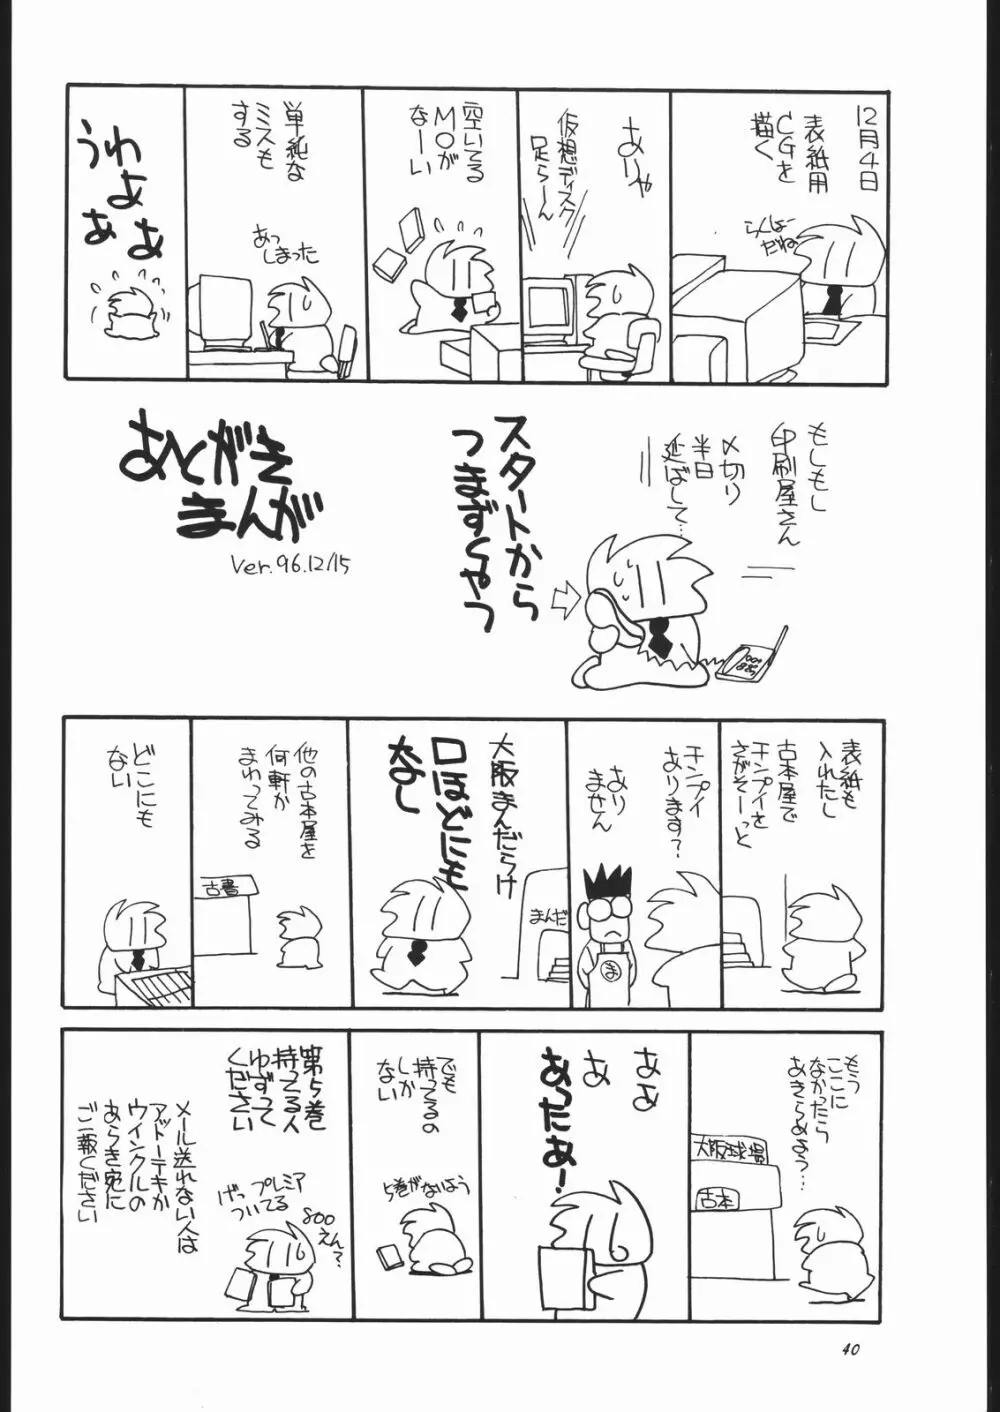 12月4日
表紙用
CGを
描く
らくしょー
だね
ありゃ
仮想ディスク
足らーん
空いてる
MOが
なーい
単純な
ミスも
する
あっ
しまった
うわ
よぁ
ぁ
あとがき
まんが
Ver.96.12/15
もしもし
印刷屋さん
〆切り
半日
延ばして…
スタートから
つまずくやつ
表紙も
入れたし
古本屋で
チンプイを
さがそーっと
チンプイ
あります?
あり
ません
ま
大阪まんだらけ
まんだ
口ほどにも
なし
他の古本屋を
何軒か
まわってみる
古書
どこにも
ない
もう
ここに
なかったら
あきらめよう…
大阪球場
古本
ああ
あ
あったぁー!
でも
持ってるの
しか
ない
5巻がないよう
第5巻
持ってる人
ゆずって
ください
げっ プレミア
ついてる
800
えん?
メール送れない人は
アットーテキか
ウインクルの
あらき宛に
ご一報ください
40